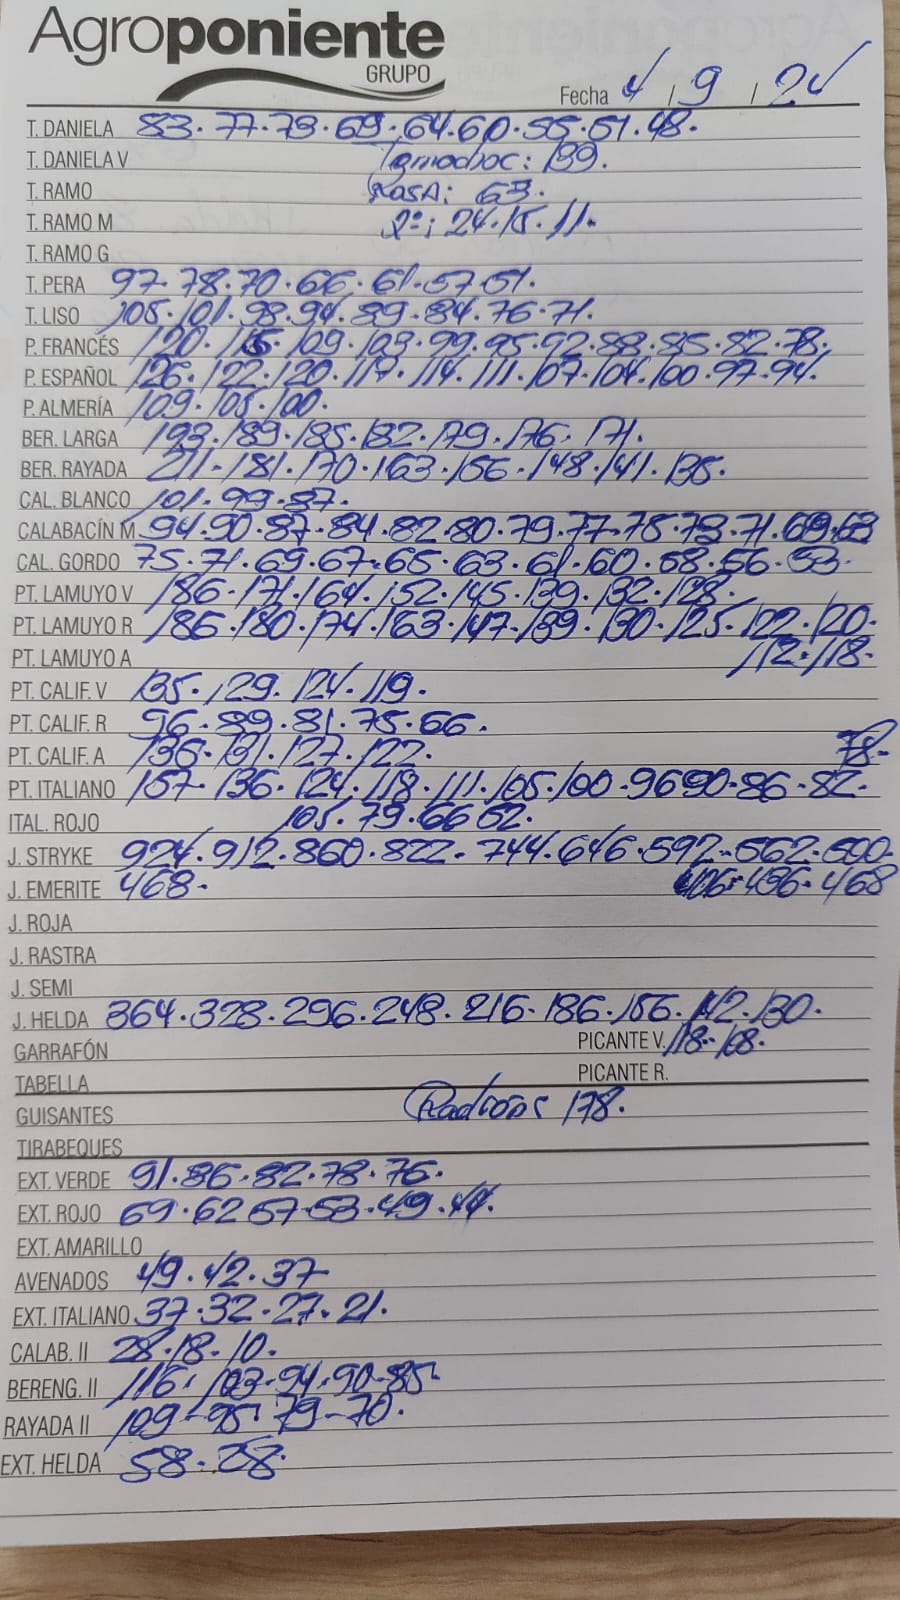 Agroponiente
GRUPO
Fecha 4 / 9 / 24
T. DANIELA 83. 77. 73. 69. 64. 60. 55. 51. 48.
T. DANIELA V : 139.
T. RAMO ROSA: 63.
T. RAMO M 2ª: 24. 15. 11.
T. RAMO G
T. PERA 97. 78. 70. 66. 61. 57. 51.
T. LISO 105. 101. 98. 94. 89. 84. 76. 71.
P. FRANCÉS 120. 115. 109. 103. 99. 95. 92. 88. 85. 82. 78.
P. ESPAÑOL 126. 122. 120. 117. 114. 111. 107. 104. 100. 97. 94.
P. ALMERÍA 109. 105. 100.
BER. LARGA 193. 189. 185. 182. 179. 176. 171.
BER. RAYADA 211. 181. 170. 163. 156. 148. 141. 135.
CAL. BLANCO 101. 99. 87.
CALABACÍN M 94. 90. 87. 84. 82. 80. 79. 77. 75. 73. 71. 69. 63
CAL. GORDO 75. 71. 69. 67. 65. 63. 61. 60. 58. 56. 53.
PT. LAMUYO V 186. 171. 164. 152. 145. 139. 132. 128.
PT. LAMUYO R 186. 180. 174. 163. 147. 139. 130. 125. 122. 120.
PT. LAMUYO A 112. 118.
PT. CALIF. V 135. 129. 124. 119.
PT. CALIF. R 96. 89. 81. 75. 66.
PT. CALIF. A 136. 131. 127. 122. 78.
PT. ITALIANO 157. 136. 124. 118. 111. 105. 100. 96 90. 86. 82.
ITAL. ROJO 105. 79. 66 52.
J. STRYKE 924. 912. 860. 822. 744. 646. 592. 562. 500.
J. EMERITE 468. 436. 468
J. ROJA
J. RASTRA
J. SEMI
J. HELDA 364. 328. 296. 248. 216. 186. 156. 142. 130.
GARRAFÓN PICANTE V. 118. 108.
TABELLA PICANTE R.
GUISANTES 178.
TIRABEQUES
EXT. VERDE 91. 86. 82. 78. 76.
EXT. ROJO 69. 62 57. 53. 49. 44.
EXT. AMARILLO
AVENADOS 49. 42. 37
EXT. ITALIANO 37. 32. 27. 21.
CALAB. II 28. 18. 10.
BERENG. II 116. 103. 94. 90. 85.
RAYADA II 109. 95. 79. 70.
EXT. HELDA 58. 28.